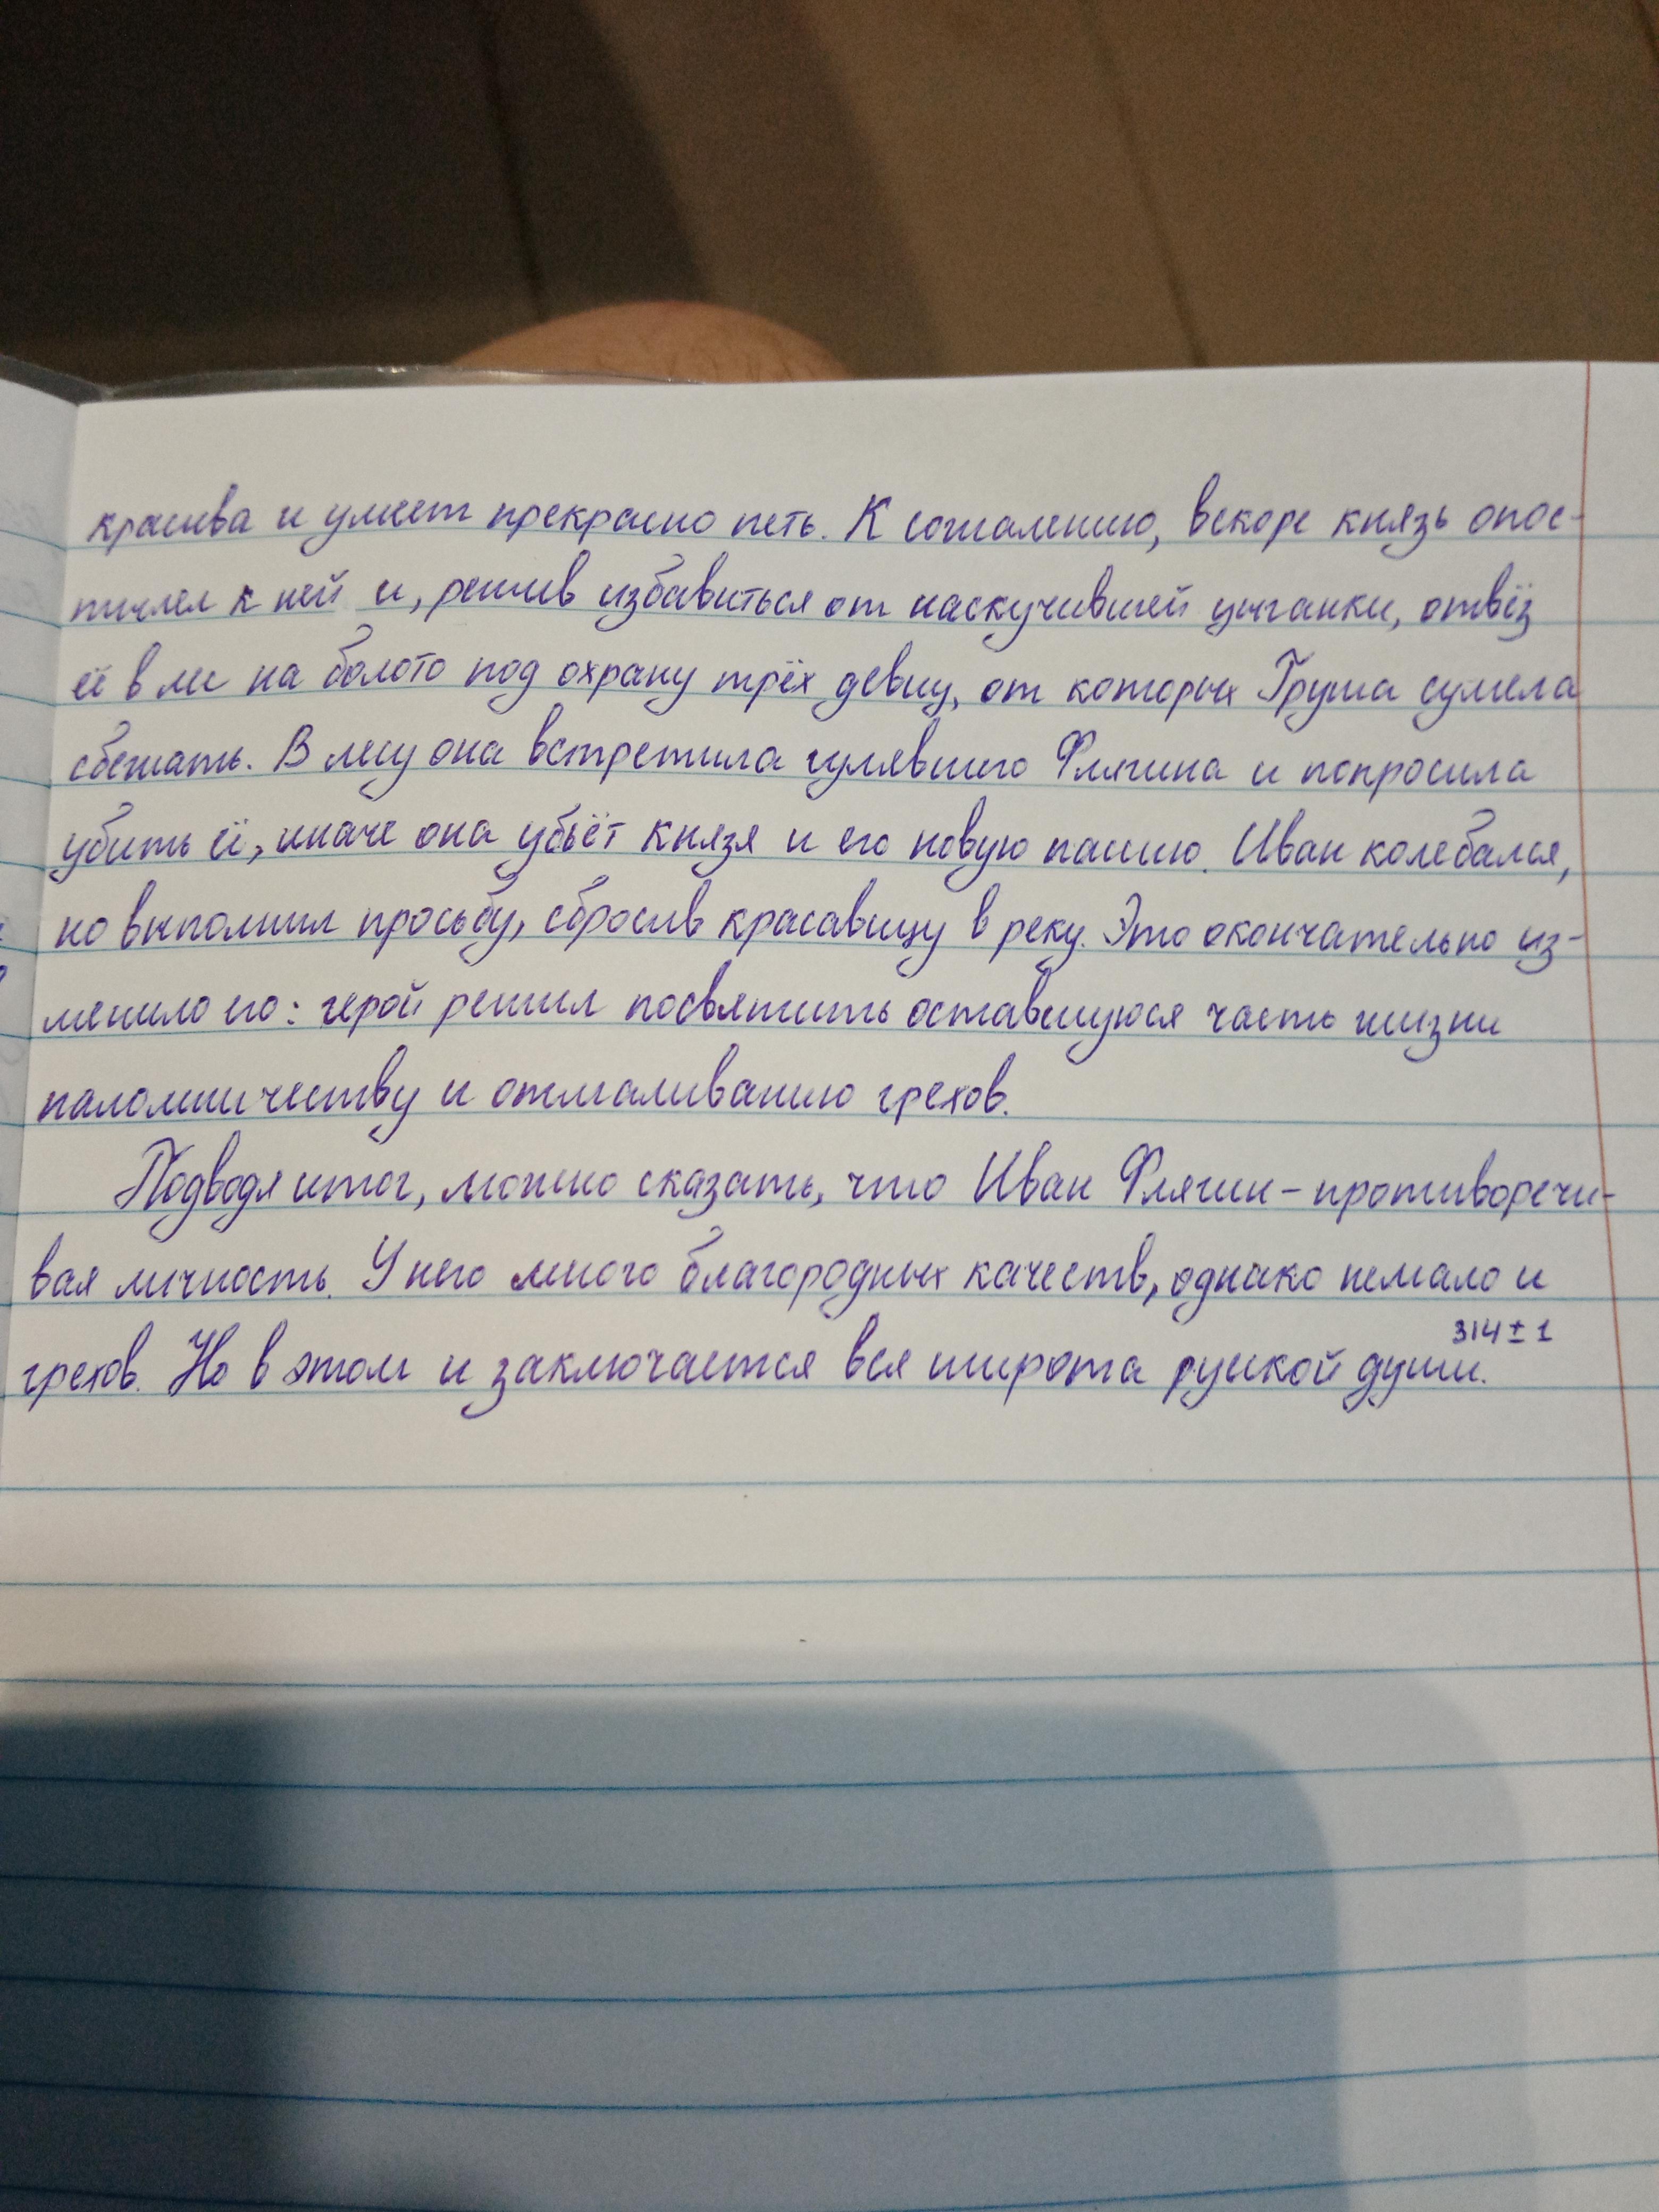 красива и умеет прекрасно петь. К сожалению, вскоре князь опос-
тылел к ней и, решив избавиться от наскучившей цыганки, отвёз
её в лес на болото под охрану трёх девиц, от которых Груша сумела
сбежать. В лесу она встретила гулявшего Флягина и попросила
убить её, иначе она убьёт князя и его новую пассию. Иван колебался,
но выполнил просьбу, сбросив красавицу в реку. Это окончательно из-
менило его: герой решил посвятить оставшуюся часть жизни
паломничеству и отмаливанию грехов.
Подводя итог, можно сказать, что Иван Флягин – противоречи-
вая личность. У него много благородных качеств, однако немало и
грехов. Но в этом и заключается вся широта русской души.
314 ± 1